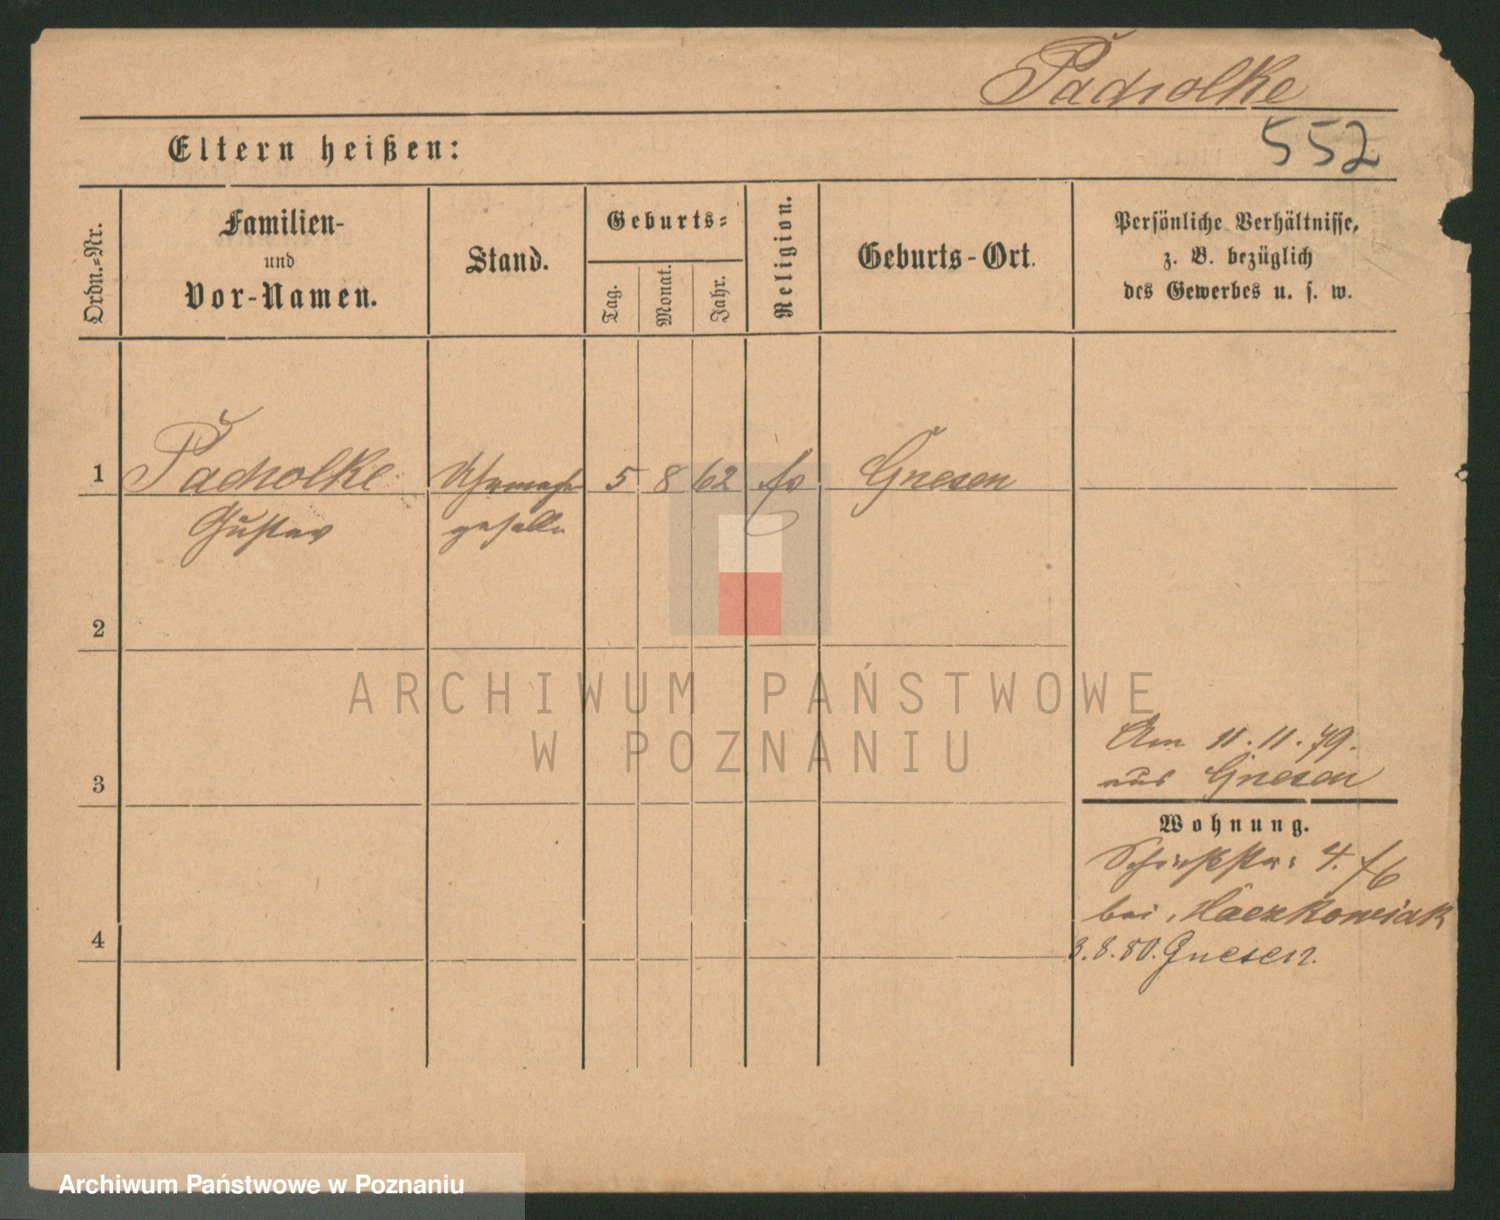 Pacholke
552
Eltern heißen:
Ordn.-Nr.
Familien-
und
Vor-Namen.
Stand.
Geburts-
Tag.
Monat.
Jahr.
Religion.
Geburts-Ort.
Persönliche Verhältnisse,
z. B. bezüglich
des Gewerbes u. s. w.
1 Pacholke 5 8 62 Gnesen
Gustav geselle
2
ARCHIWUM PAŃSTWOWE
W POZNANIU
Am 11.11.79.
aus Gnesen
3
Wohnung.
4.
bei
4
3.8.80. Gnesen.
Archiwum Państwowe w Poznaniu